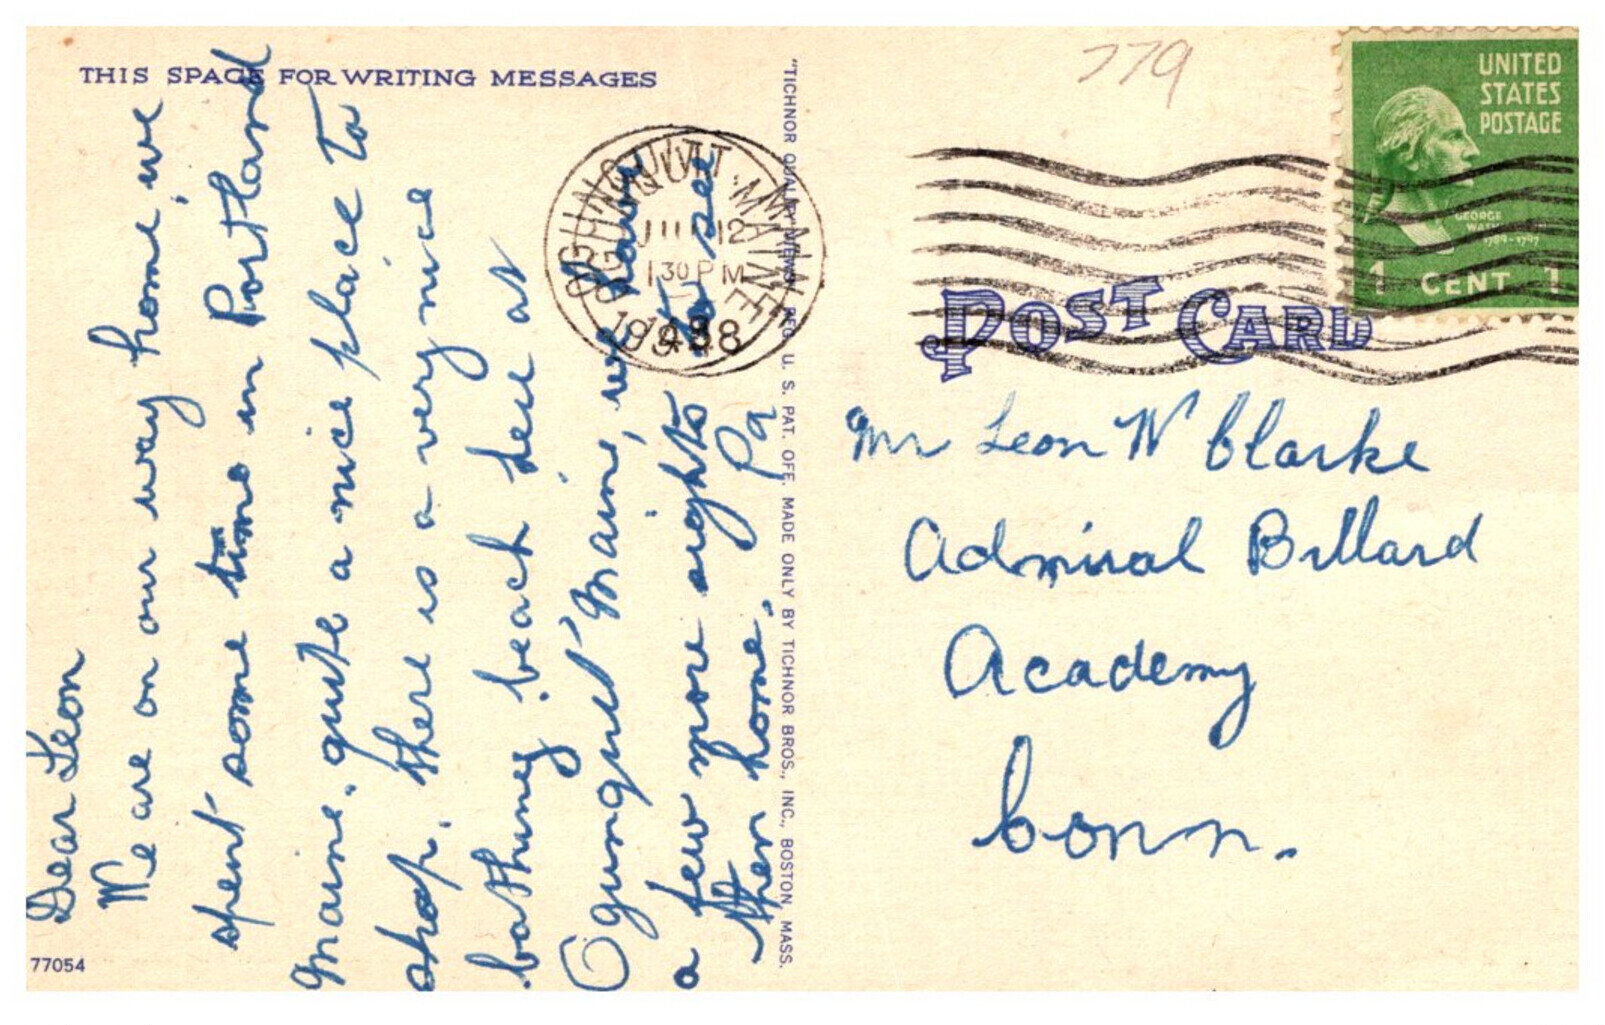 THIS SPACE FOR WRITING MESSAGES
Dear Leon
We are on our way home, we
spent some time in Portland
Maine. quite a nice place to
shop. there is a very nice
bathing beach here at
Ogunquit Maine, we have
a few more sights to see
then home. Pa
77054
"TICHNOR QUALITY VIEWS," REG. U. S. PAT. OFF. MADE ONLY BY TICHNOR BROS., INC., BOSTON, MASS.
OGUNQUIT, MAINE
12
1 30 PM
779
UNITED
STATES
POSTAGE
GEORGE
WASHINGTON
1789-1797
1 CENT 1
POST CARD
Mr Leon W Clarke
Admiral Billard
Academy
Conn.